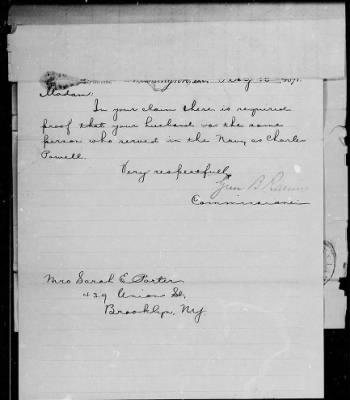 Washington,
Madam:
In your claim there is required
proof that your husband was the same
person who served in the Navy as Charles
Powell.
Very respectfully,
Commissioner
Mrs Sarah E. Porter
429 Union St,
Brooklyn, NY